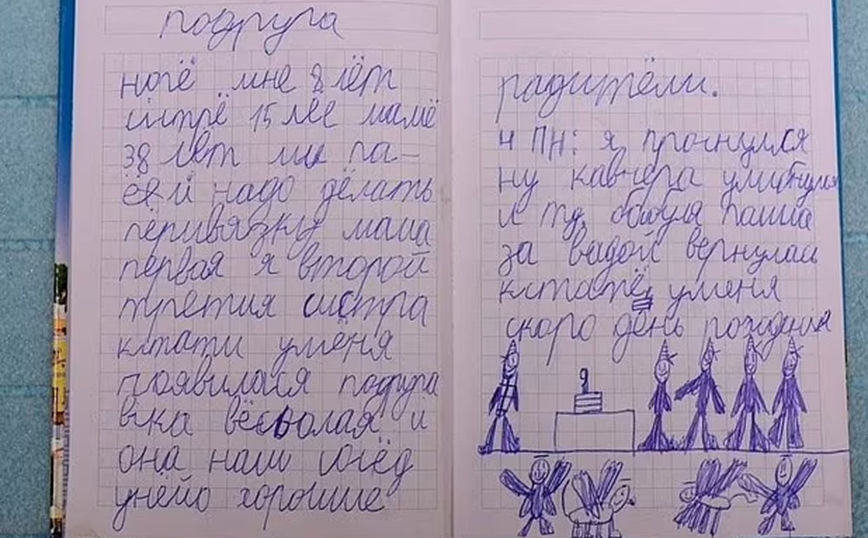 подруга
ногё мне 8 лёт
систрё 15 лее мамё
38 лет
надо дёлать
пёривязку мама
первая я второй
третия систра
кстати умёня
появилася подруга
вика вёсёолая и
она наш сосёд
унёйо хорошие
радитёли.
4 ПН: я прогнулся
ну кавчера
и бабуля пашла
за вадой вернулась
кстатё уменя
скоро дёнь рождения
9